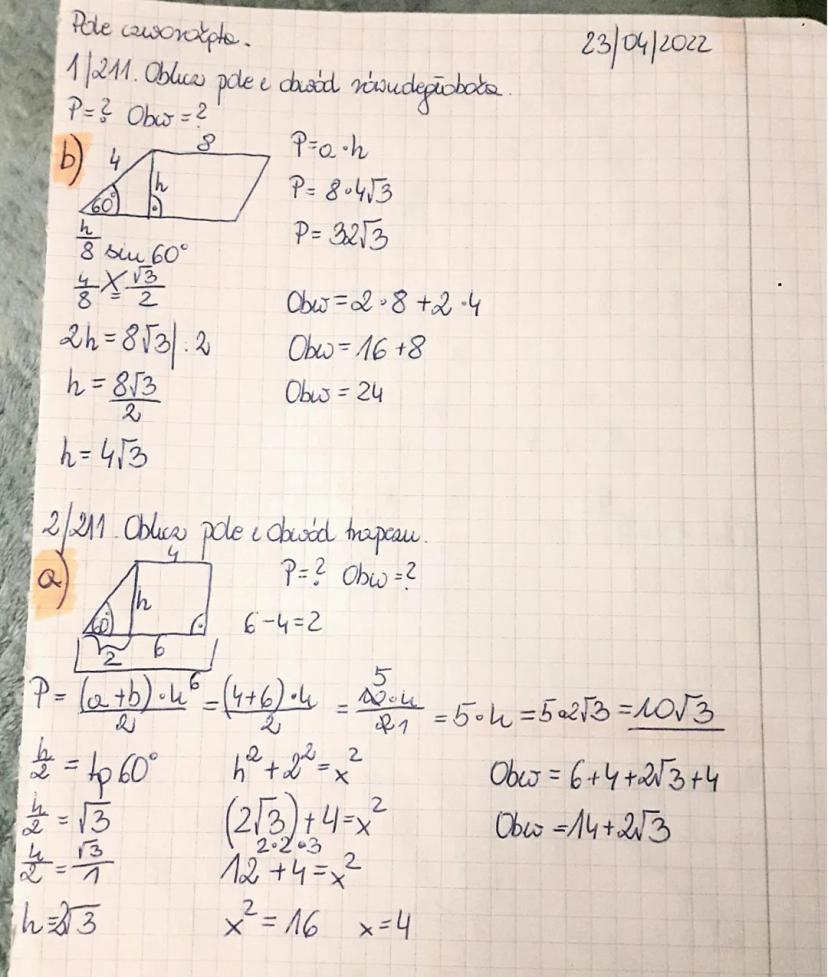 Pole czworokąta.
23/04/2022
1/211. Oblicz pole i obwód równoległoboku.
P=? Obw=?
b)
4
8
h
60°
P=a·h
P=8·4√3
P=32√3
h/8 sin 60°
h/8 = √3/2
2h=8√3|:2
h=8√3/2
h=4√3
Obw=2·8+2·4
Obw=16+8
Obw=24
2/211. Oblicz pole i obwód trapezu.
a)
4
h
60°
2
6
6
P=? Obw=?
6-4=2
P=(a+b)·h/2=(4+6)·h/2=10·h/2 5 1=5·h=5·2√3=10√3
h/2=tg60°
h/2=√3
h/2=√3/1
h=2√3
h²+2²=x²
(2√3)+4=x²
2·2·3
12+4=x²
x²=16 x=4
Obw=6+4+2√3+4
Obw=14+2√3